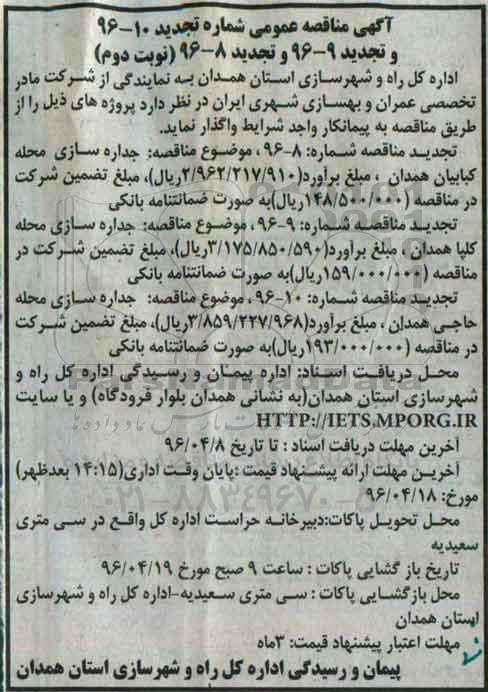 آگهی مناقصه عمومی شماره تجدید ۱۰-۹۶
و تجدید ۹-۹۶ و تجدید ۸-۹۶ (نوبت دوم)
اداره کل راه و شهرسازی استان همدان به نمایندگی از شرکت مادر
تخصصی عمران و بهسازی شهری ایران در نظر دارد پروژه های ذیل را از
طریق مناقصه به پیمانکار واجد شرایط واگذار نماید.
تجدید مناقصه شماره: ۸-۹۶ ، موضوع مناقصه: جداره سازی محله
کبابیان همدان ، مبلغ برآورد(۲/۹۶۲/۲۱۷/۹۱۰ریال)، مبلغ تضمین شرکت
در مناقصه (۱۴۸/۵۰۰/۰۰۰ریال)به صورت ضمانتنامه بانکی
تجدید مناقصه شماره: ۹-۹۶ ، موضوع مناقصه: جداره سازی محله
کلپا همدان ، مبلغ برآورد(۳/۱۷۵/۸۵۰/۵۹۰ریال)، مبلغ تضمین شرکت در
مناقصه (۱۵۹/۰۰۰/۰۰۰ریال)به صورت ضمانتنامه بانکی
تجدید مناقصه شماره: ۱۰-۹۶ ، موضوع مناقصه: جداره سازی محله
حاجی همدان ، مبلغ برآورد(۳/۸۵۹/۲۲۷/۹۶۸ریال)، مبلغ تضمین شرکت
در مناقصه (۱۹۳/۰۰۰/۰۰۰ریال)به صورت ضمانتنامه بانکی
محل دریافت اسناد: اداره پیمان و رسیدگی اداره کل راه و
شهرسازی استان همدان(به نشانی همدان بلوار فرودگاه) و یا سایت
HTTP://IETS.MPORG.IR
آخرین مهلت دریافت اسناد : تا تاریخ ۹۶/۰۴/۸
آخرین مهلت ارائه پیشنهاد قیمت :پایان وقت اداری(۱۴:۱۵ بعدظهر)
مورخ: ۹۶/۰۴/۱۸
محل تحویل پاکات:دبیرخانه حراست اداره کل واقع در سی متری
سعیدیه
تاریخ باز گشایی پاکات : ساعت ۹ صبح مورخ ۹۶/۰۴/۱۹
محل بازگشایی پاکات : سی متری سعیدیه-اداره کل راه و شهرسازی
استان همدان
مهلت اعتبار پیشنهاد قیمت: ۳ماه
پیمان و رسیدگی اداره کل راه و شهرسازی استان همدان
ParsNamadData
۰۲۱-۸۸۳۴۹۶۷۰-۵